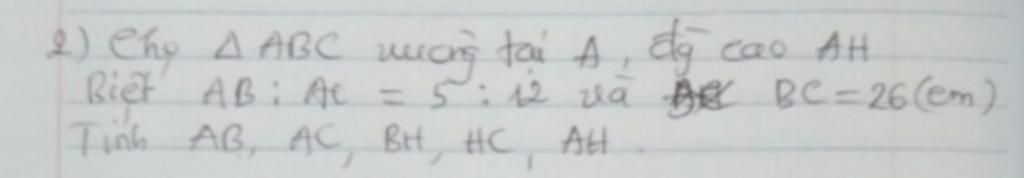 2) Cho Δ ABC vuông tại A, đg cao AH
Biết AB : AC = 5 : 12 và BC = 26 (cm)
Tính AB, AC, BH, HC, AH.